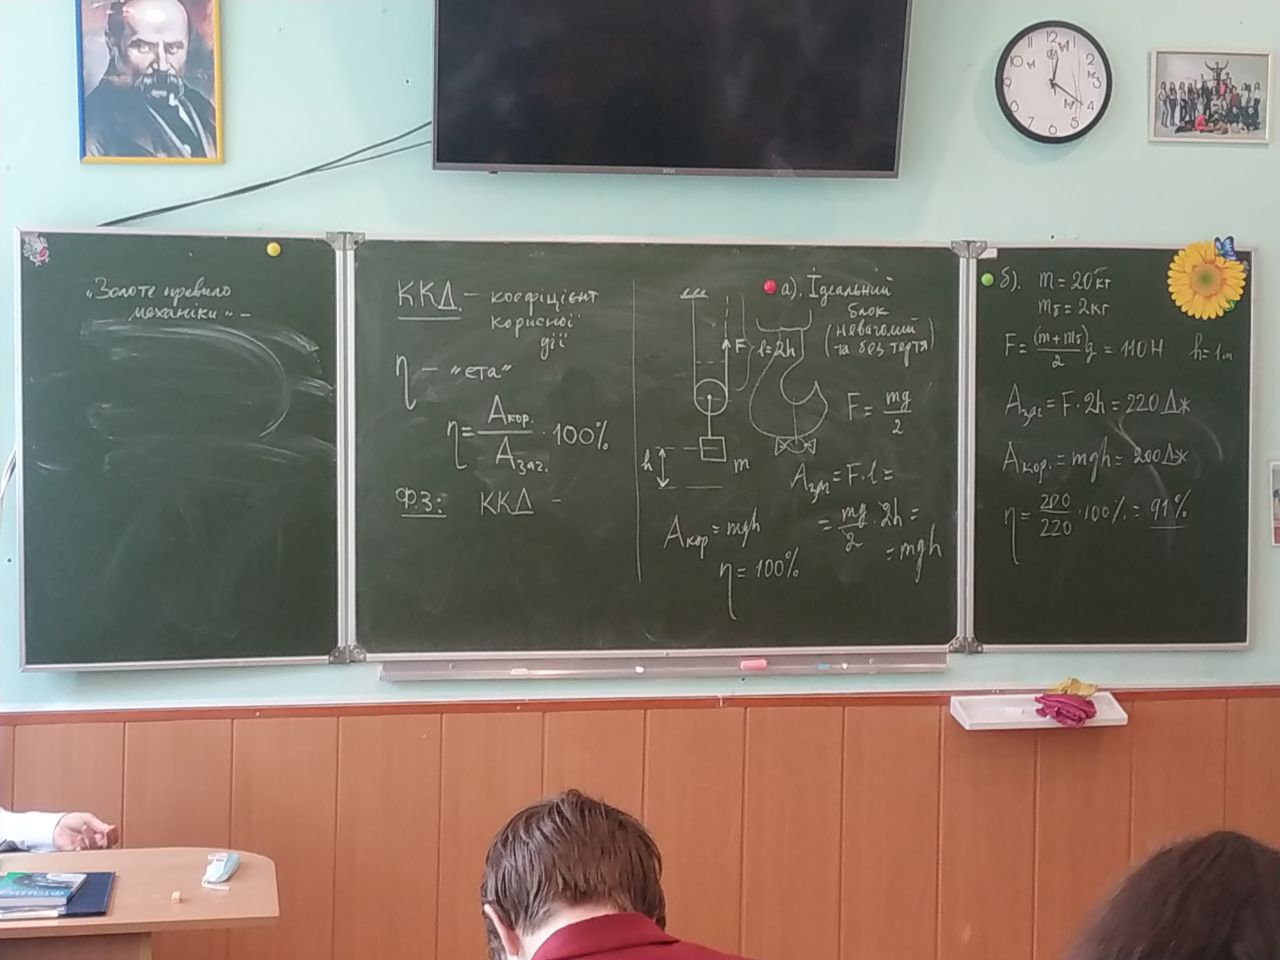 „Золоте правило
механіки" -
ККД - коефіцієнт
корисної
дії
η - "ета"
η = Aкор. / Aзаг. · 100%
Ф.З.: ККД -
F
l=2h
h
m
Aкор = mgh
η = 100%
а). Ідеальний
блок
(невагомий
та без тертя)
F = mg / 2
Aзаг = F·l =
= mg / 2 · 2h =
= mgh
б). m = 20 кг
mб = 2 кг
F = (m+mб) / 2 g = 110 Н h = 1 м
Aзаг = F·2h = 220 Дж
Aкор. = mgh = 200 Дж
η = 200 / 220 · 100% = 91%
12
1
2
3
4
5
6
7
8
9
10
11